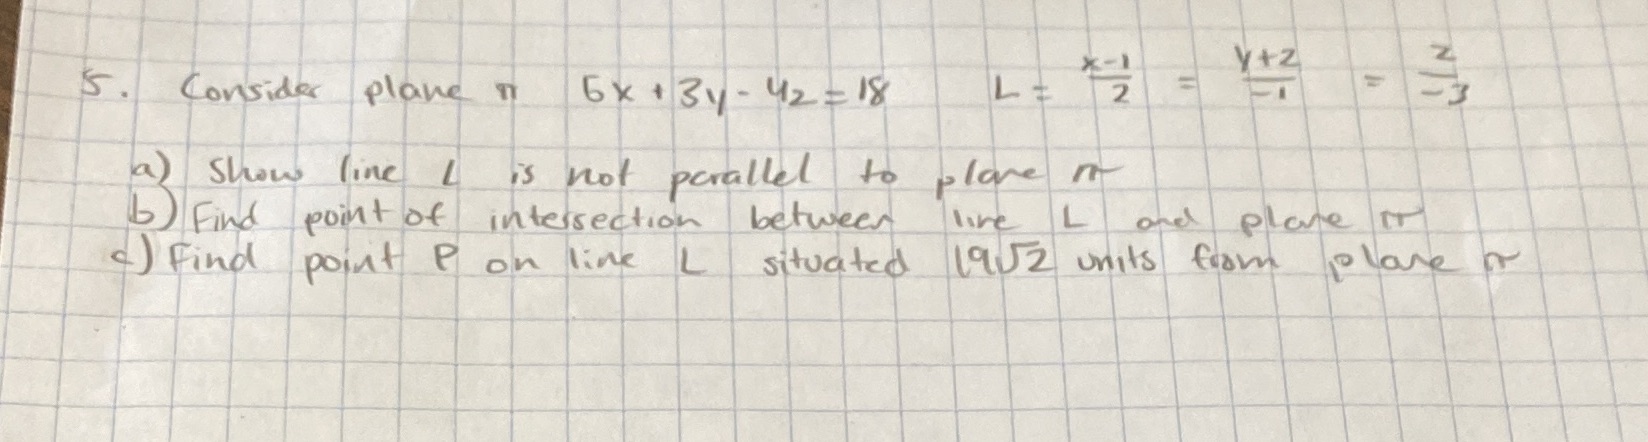 5. Consider plane π 5x + 3y - 4z = 18 L = x-1/2 = y+2/-1 = z/-3
a) Show line L is not parallel to plane π
b) Find point of intersection between line L and plane π
c) Find point P on line L situated 19√2 units from plane π